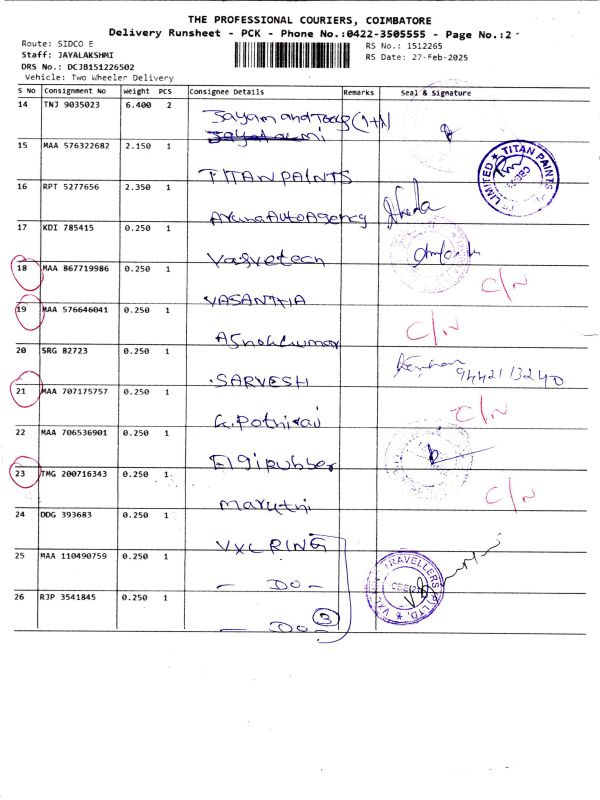 THE PROFESSIONAL COURIERS, COIMBATORE
Delivery Runsheet - PCK - Phone No.:0422-3505555 - Page No.:2
Route: SIDCO E
RS No.: 1512265
Staff: JAYALAKSHMI
RS Date: 27-Feb-2025
DRS No.: DCJB151226502
Vehicle: Two Wheeler Delivery
S No Consignment No Weight PCS Consignee Details Remarks Seal & Signature
14 TNJ 9035023 6.400 2 (1+1)
15 MAA 576322682 2.150 1 TITAN PAINTS
TITAN PAINTS LIMITED
16 RPT 5277656 2.350 1 Aruna Auto Agency
17 KDI 785415 0.250 1
18 MAA 867719986 0.250 1 VASANTHA C/N
19 MAA 576646041 0.250 1 Ashok kumar C/N
20 SRG 82723 0.250 1 SARVESH 9442113240
21 MAA 707175757 0.250 1 K. Pothiraj C/N
22 MAA 706536901 0.250 1 Elgi rubber
23 TMG 200716343 0.250 1 maruthi C/N
24 DDG 393683 0.250 1 VXL RING
25 MAA 110490759 0.250 1 - DO -
26 RJP 3541845 0.250 1 - DO - 3
VXL TRAVELLERS (P) LTD.